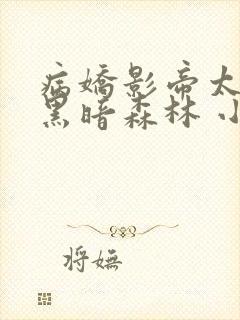 病娇影帝太
黑暗森林 小
将妩